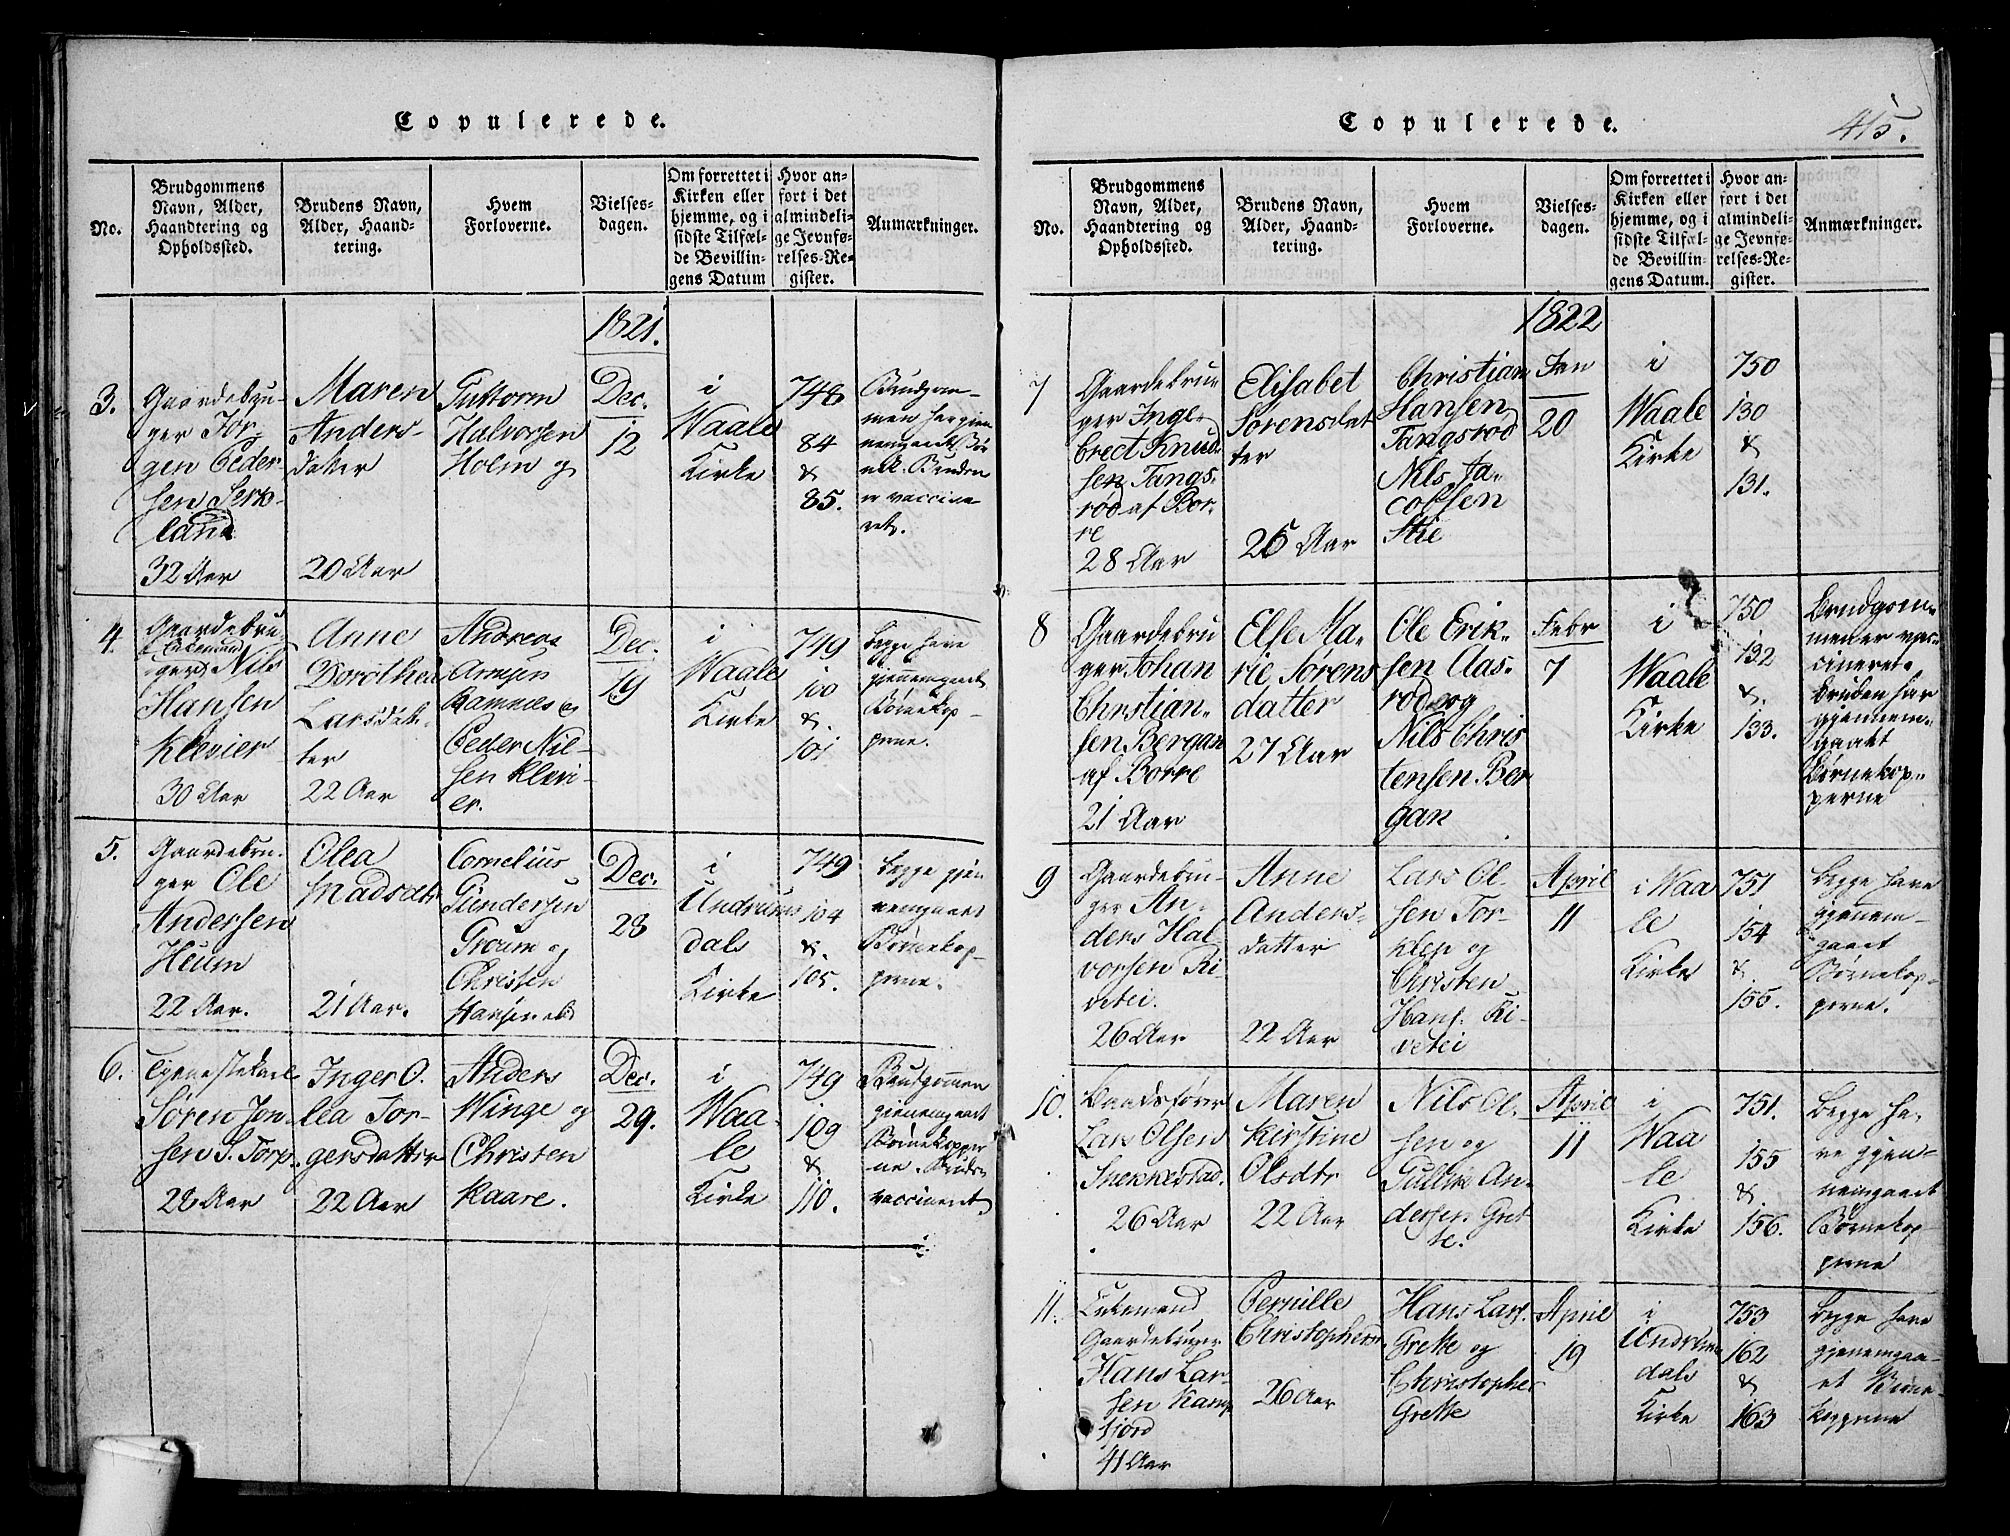 Copulerede.
No.
Brudgommens
Navn, Alder,
Haandtering og
Opholdssted.
Brudens Navn,
Alder, Haand-
tering.
Hvem
Forloverne.
Vielses-
dagen.
Om forrettet i
Kirken eller
hjemme, og i
sidste Tilfæl-
de Bevillin-
gens Datum
Hvor an-
ført i det
almindeli-
ge Jevnfø-
relses-Re-
gister.
Anmærkninger.
1821.
3.
Gaardebru-
ger Jør-
gen Peder
sen Serk-
land
32 Aar
Maren
Anders-
datter
20 Aar
Guttorm
Halvorsen
Holm og
Dec.
12
i
Waale
Kirke
748
84
&
85.
Brudgom-
men har gjen
nemgaaet Bør
nek. Bruden
er vaccine
ret.
4.
Gaardebru-
ger Nils
Hansen
Klevier
30 Aar
Anne
Dorothea
Larsdat-
ter
22 Aar
Andreas
Arnsen
Ramnæs og
Peder Nil-
sen Klevi-
er.
Dec.
19
i
Waale
Kirke
749
100
&.
101
begge have
gjennemgaaet
Børnekop-
perne.
5.
Gaardebru-
ger Ole
Andersen
Heum
22 Aar.
Olea
Madsdtr
21 Aar.
Cornelius
Gundersen
Groum og
Christen
Hansen ibd
Dec.
28
i
Undrums
dals
Kirke
749
104
&.
105.
begge gjen
nemgaaet
Børnekop-
perne.
6.
Tjenestekarl
Søren Jon
sen S. Torp
28 Aar
Inger O.
lea Tor-
gersdatter
22 Aar
Anders
Winge og
Christen
Kaare.
Dec.
29.
i
Waa-
le
Kirke
749
109
&
110.
Brudgommen
gjennemgaaet
Børnekopper
ne. Bruden
vaccineret.
Copulerede.
415.
No.
Brudgommens
Navn, Alder,
Haandtering og
Opholdssted.
Brudens Navn,
Alder, Haand-
tering.
Hvem
Forloverne.
Vielses-
dagen.
Om forrettet i
Kirken eller
hjemme, og i
sidste Tilfæl-
de Bevillin-
gens Datum.
Hvor an-
ført i det
almindeli-
ge Jevnfø-
relses-Re-
gister.
Anmærkninger.
1822
7
Gaardebru-
ger Inge-
brect Knud-
sen Tangs-
rød af Bor-
re
28 Aar
Elisabet
Sørensdat
ter
26 Aar
Christian
Hansen
Tangsrod
Nils Ja-
cobsen
Stie
Jan
20
i
Waale
Kirke
750
130
&
131.
8
Gaardebru
ger Johan
Christian-
sen Bergan
af Borre
21 Aar
Else Ma-
rie Sørens
datter
27 Aar
Ole Erik-
sen Aas-
rod og
Nils Chris
tensen Ber
gan
Febr
7
i
Waale
Kirke
750
132
&.
133.
Brudgom-
men er vac-
cineret.
Bruden har
gjennem-
gaaet
Børnekop-
perne
9
Gaardebru-
ger An-
ders Hal
vorsen Ri-
vetei.
26 Aar
Anne
Anders-
datter
22 Aar
Lars Ol-
sen Tor-
og
Christen
Hans. Ri-
vetei
April
11
i Waa
le
Kirke
751
154
&.
155.
Begge have
gjennem-
gaaet
Børnekop-
perne.
10.
Baadsfører
Lars Olsen
Snekkestad.
26 Aar
Maren
Kirstine
Olsdtr
22 Aar
Nils Ol-
sen og
Gulik An-
dersen Gret
te.
April
11
i
Waa
le
Kirke
751.
155
&.
156.
Begge ha-
ve gjen-
nemgaaet
Børnekop
perne
11.
Enkemand
Gaardebruger
Hans Lar-
sen Kamp
fjord
41 Aar
Pernille
Christophersd
26 Aar
Hans Lars.
Grette og
Christopher
Grette
April
19
i
Undrums
dals
Kirke
753
162
&
163
begge have
gjennemgaa-
et Børne-
kopperne